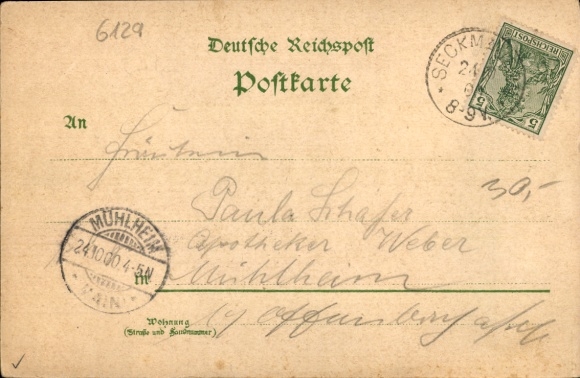 6129
Deutsche Reichspost
Postkarte
SECKM
24
8-9V.
REICHSPOST
5 5
An
Fräulein
30,-
Paula Schafer
Apotheker Weber
MÜHLHEIM
24.10.00.4-5N
MAIN
in Mühlheim
Offenbach
Wohnung
(Straße und Hausnummer)